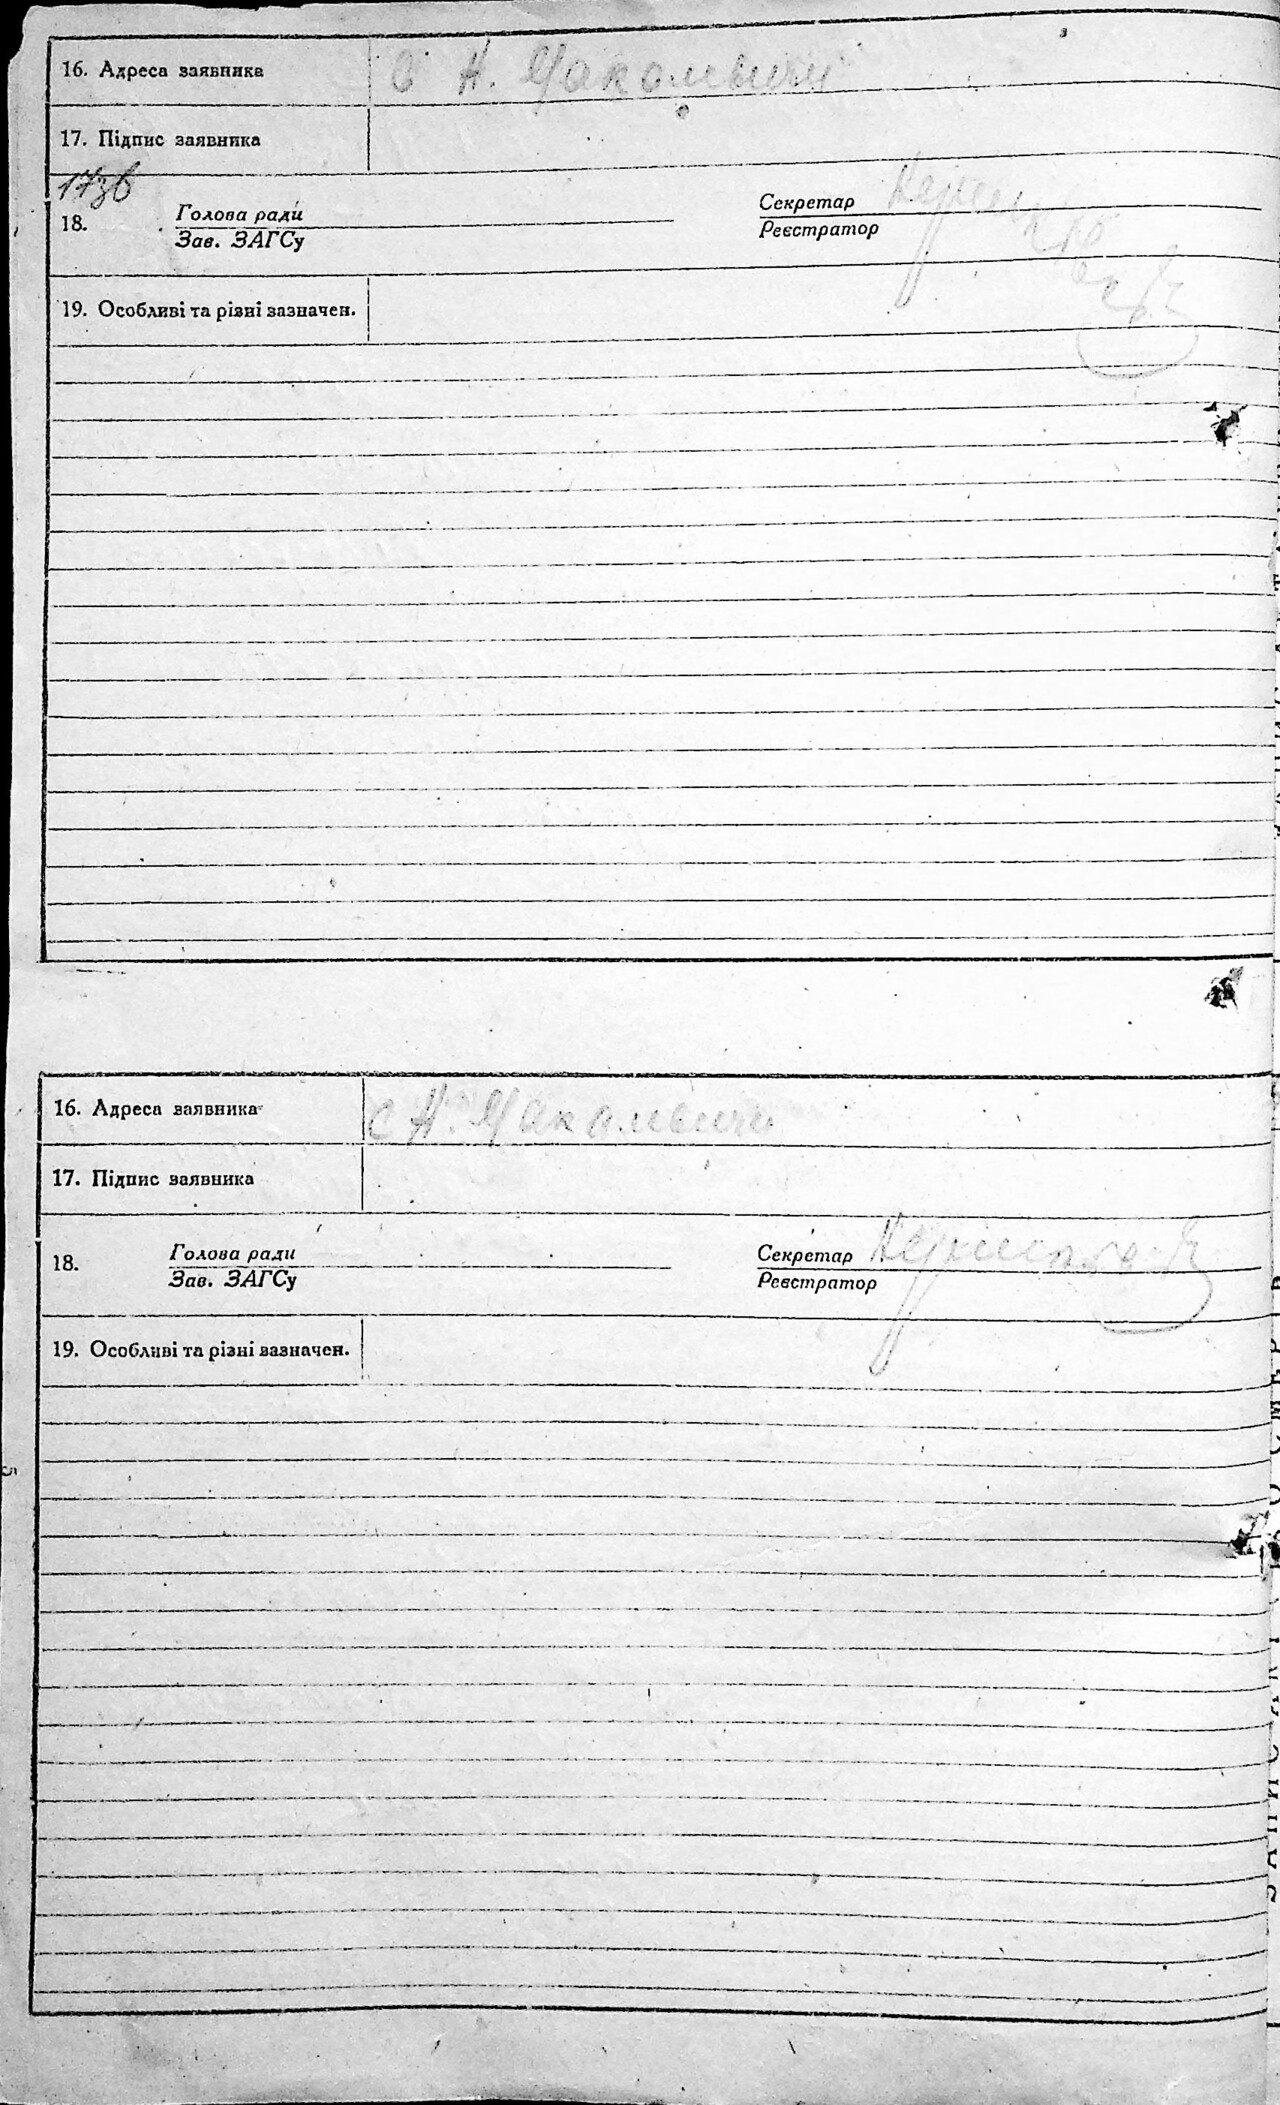 16. Адреса заявника С Н. Макалевичі
17. Підпис заявника
173б
18. Голова ради Секретар
Зав. ЗАГСу Реєстратор
19. Особливі та різні зазначен.
16. Адреса заявника с Н. Макалевичі
17. Підпис заявника
18. Голова ради Секретар
Зав. ЗАГСу Реєстратор
19. Особливі та різні зазначен.
5